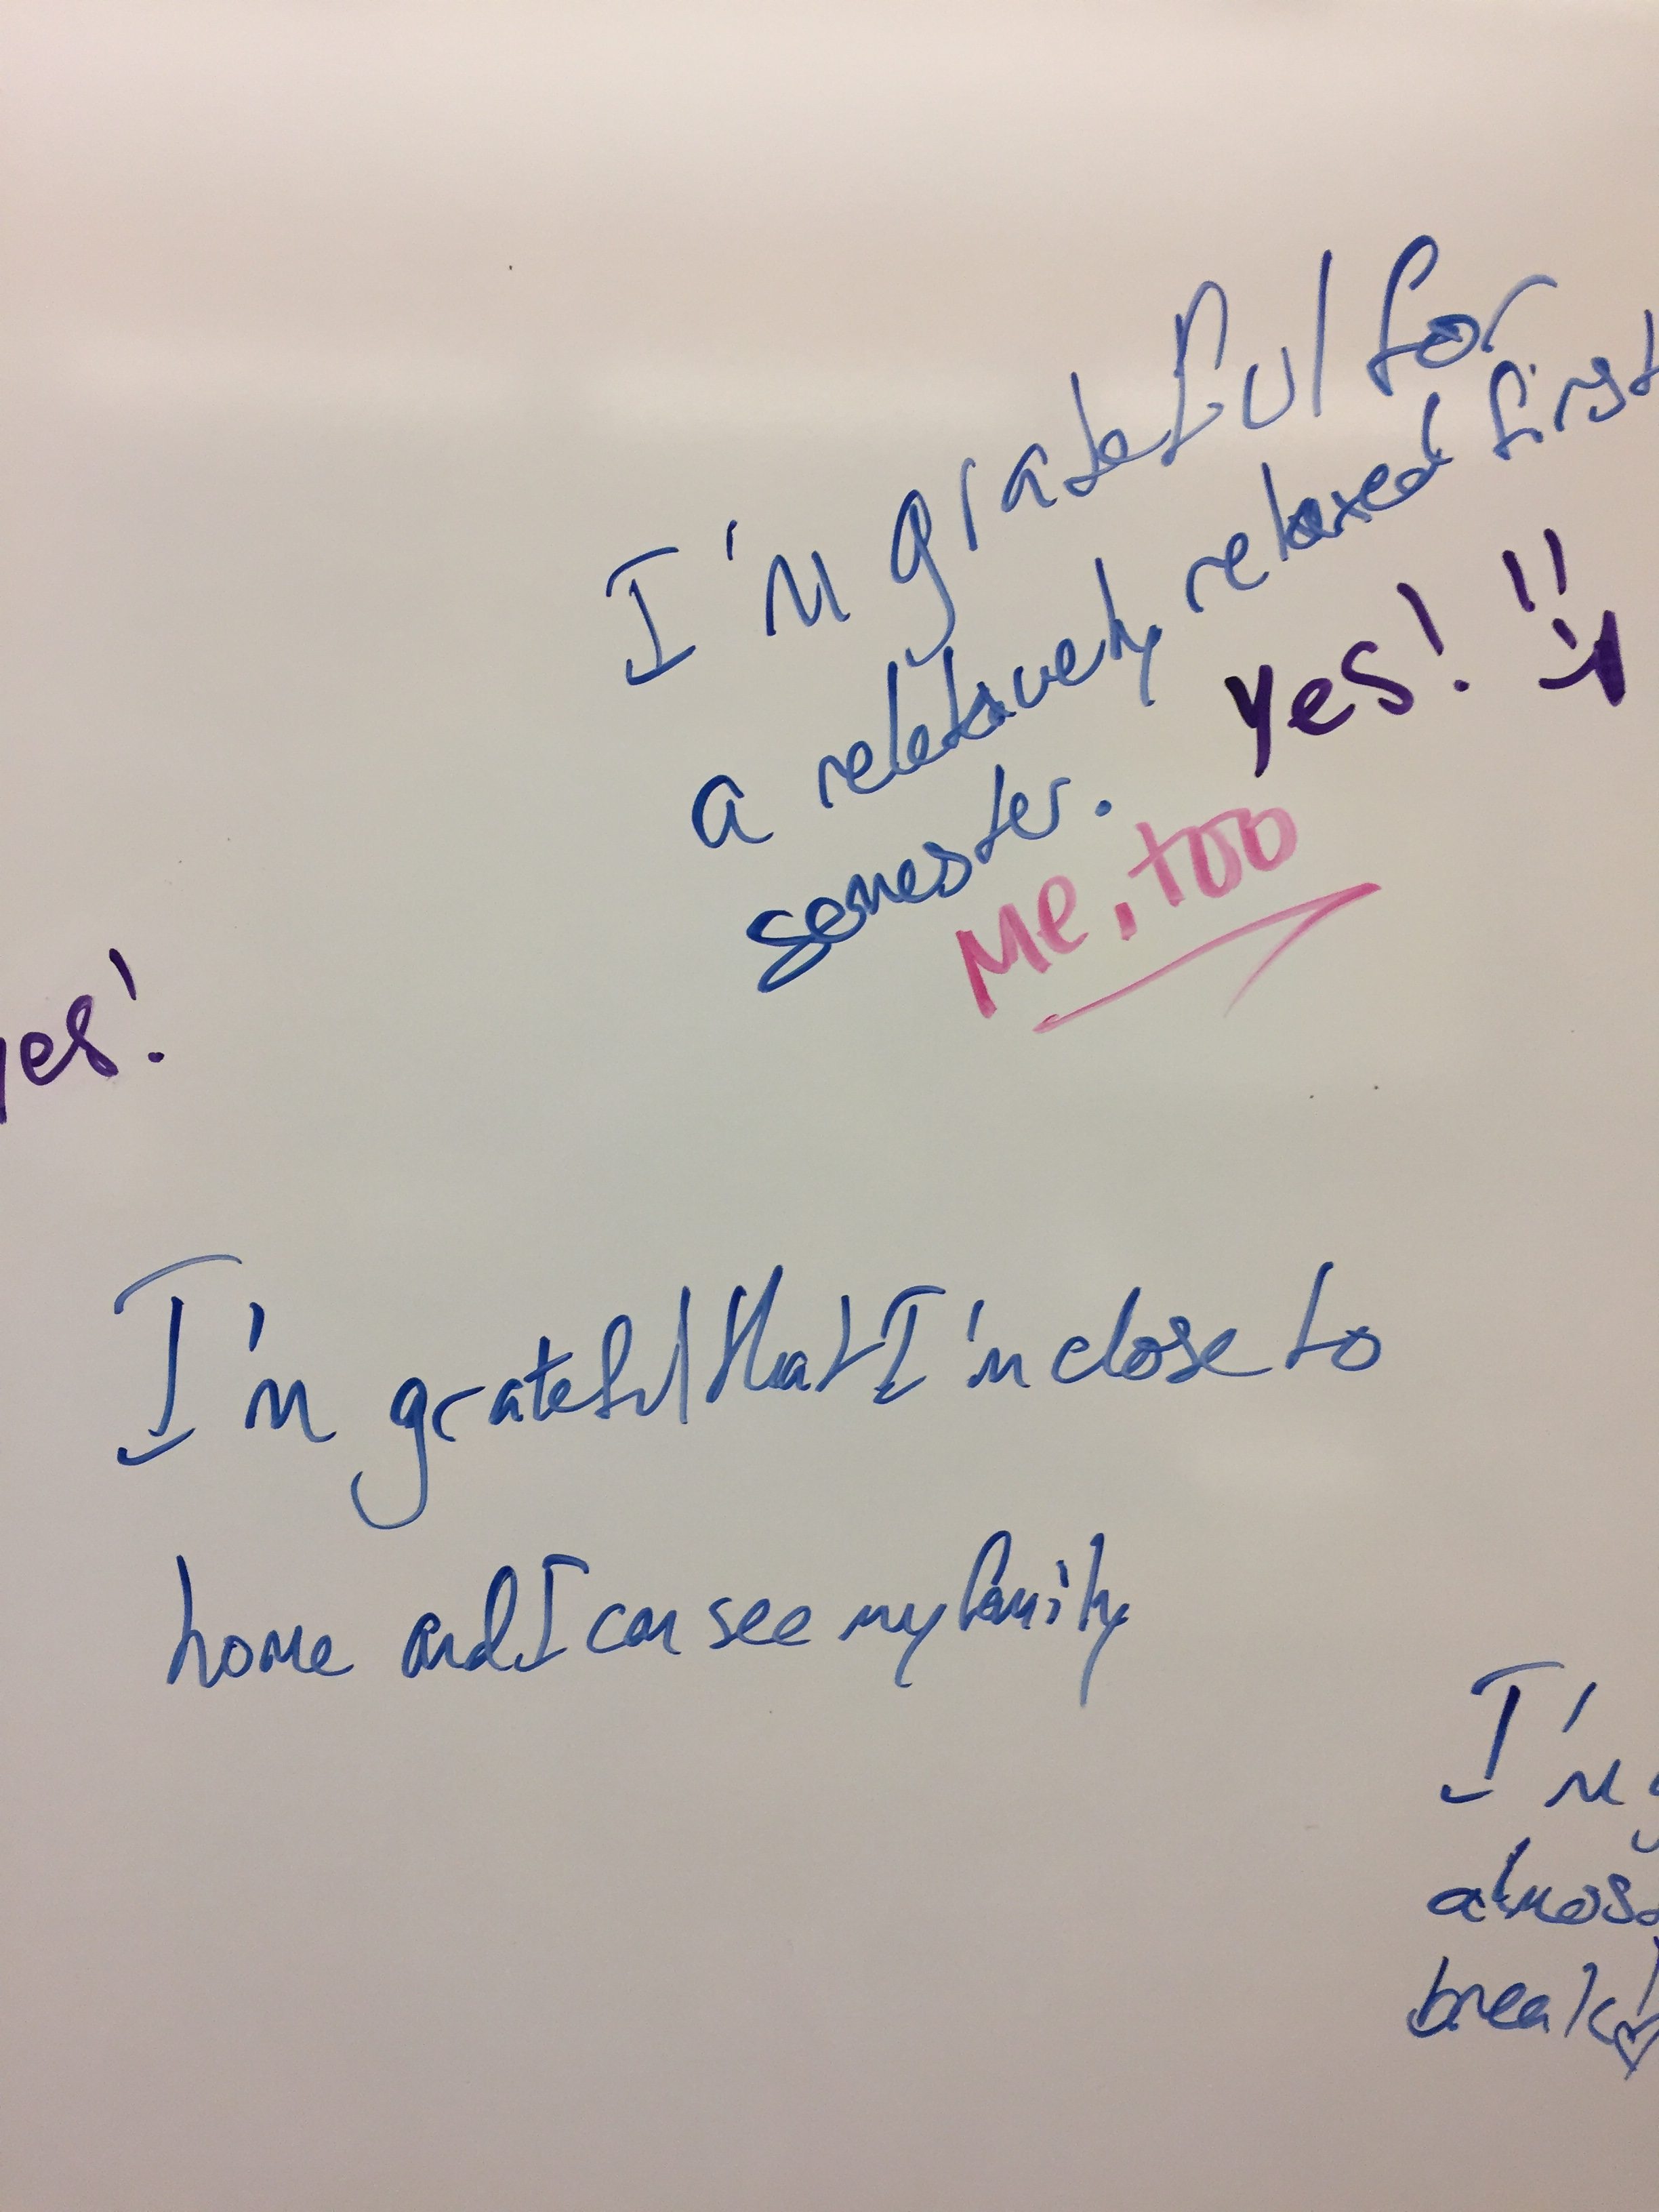 I'm grateful for
a relatively relaxed first
semester.
yes!
Me, too
yes!
I'm grateful that I'm close to
home and I can see my family
I'm
almost
break!